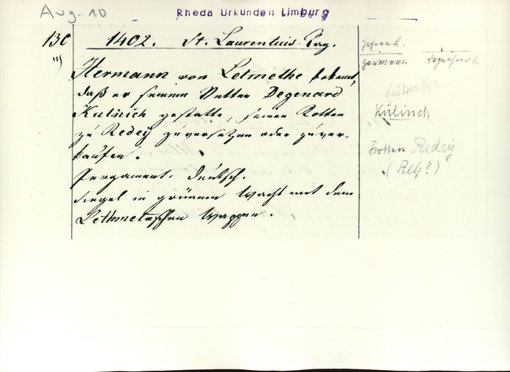 Aug. 10
Rheda Urkunden Limburg
130 1402. St. Laurentius Tag.
Hermann von Letmethe bekennt,
daß er seinem Vetter Degenard
Kulinich gestatte, seinen Rotten
zu Redey zu versetzen oder zu ver-
kaufen.
Pergament. Deutsch.
Siegel in grünem Wachs mit dem
Lethmeteschen Wappen.
Hermann
Letmathe
Kulinch
Rotten Redey
(Reh?)